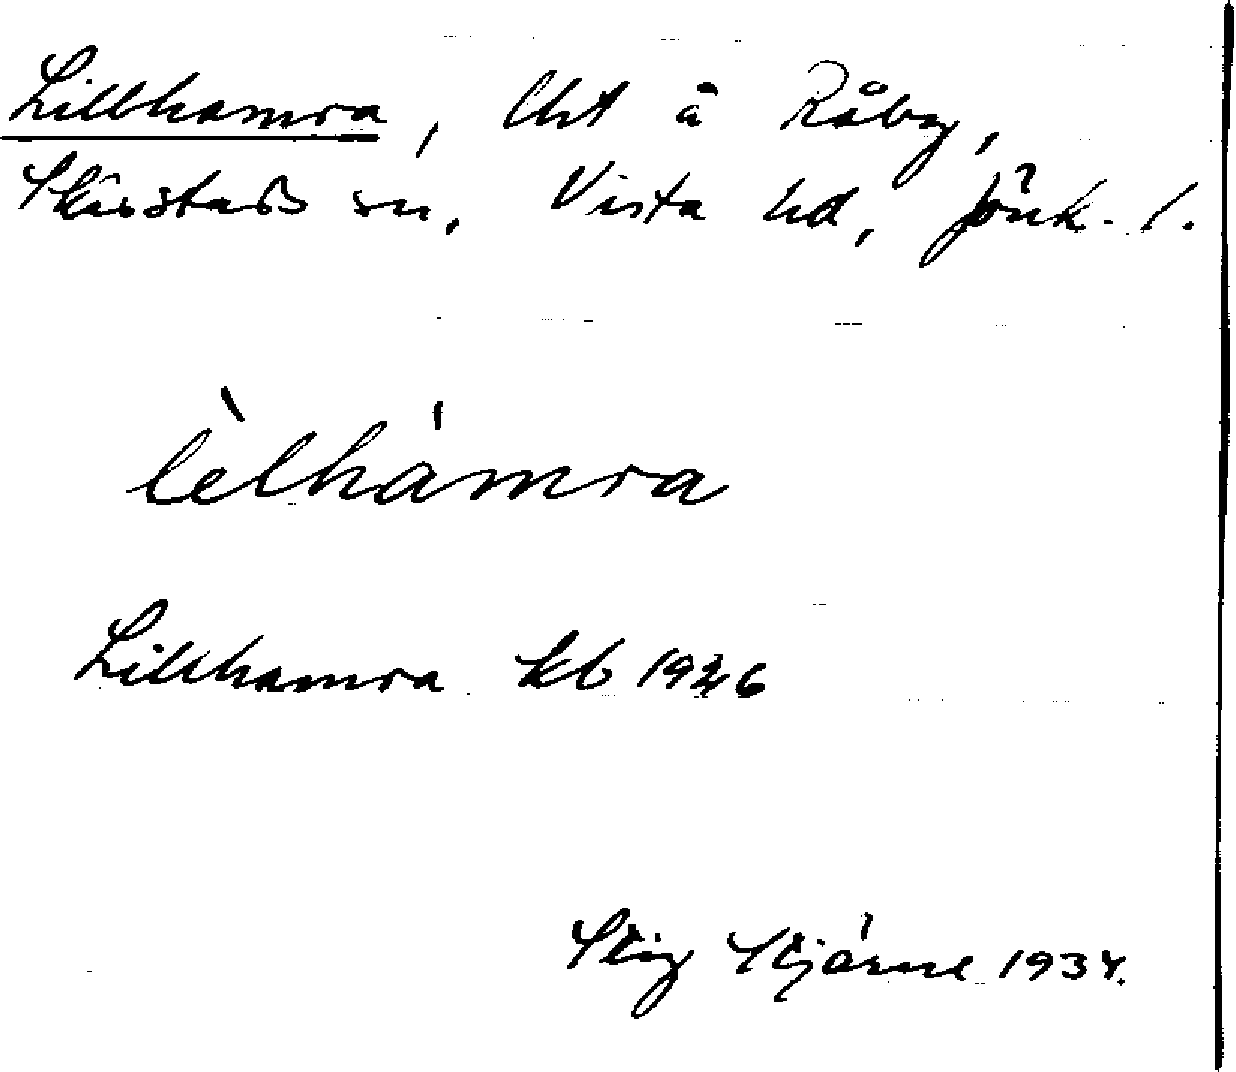 Lillhamra, lht å Råby,
Skärstads sn. Vista hd, Jönk. l.
lèlhámra
Lillhamra kb 1926
Stig Stjärne 1934.